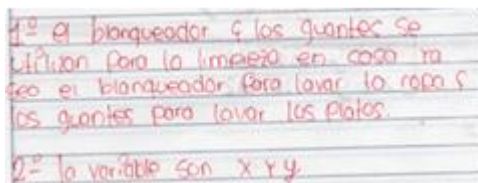 1º el blanqueador y los guantes se
utilizan para la limpieza en casa ya
sea el blanqueador para lavar la ropa y
los guantes para lavar los platos.
2º la variable son x y y.